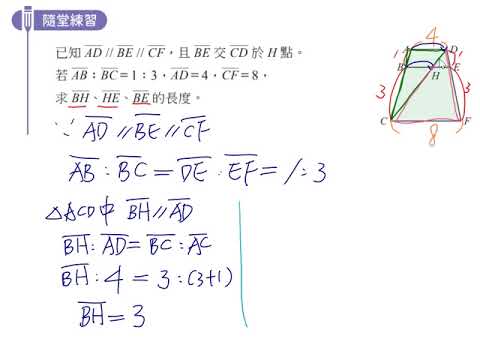 隨堂練習
已知 AD // BE // CF，且 BE 交 CD 於 H 點。
若 AB：BC＝1：3，AD＝4，CF＝8，
求 BH、HE、BE 的長度。
∵ AD // BE // CF
AB : BC = DE : EF = 1 : 3
△ACD中 BH // AD
BH : AD = BC : AC
BH : 4 = 3 : (3+1)
BH = 3
4
A D
1 1
B E
H
3 3
C F
8